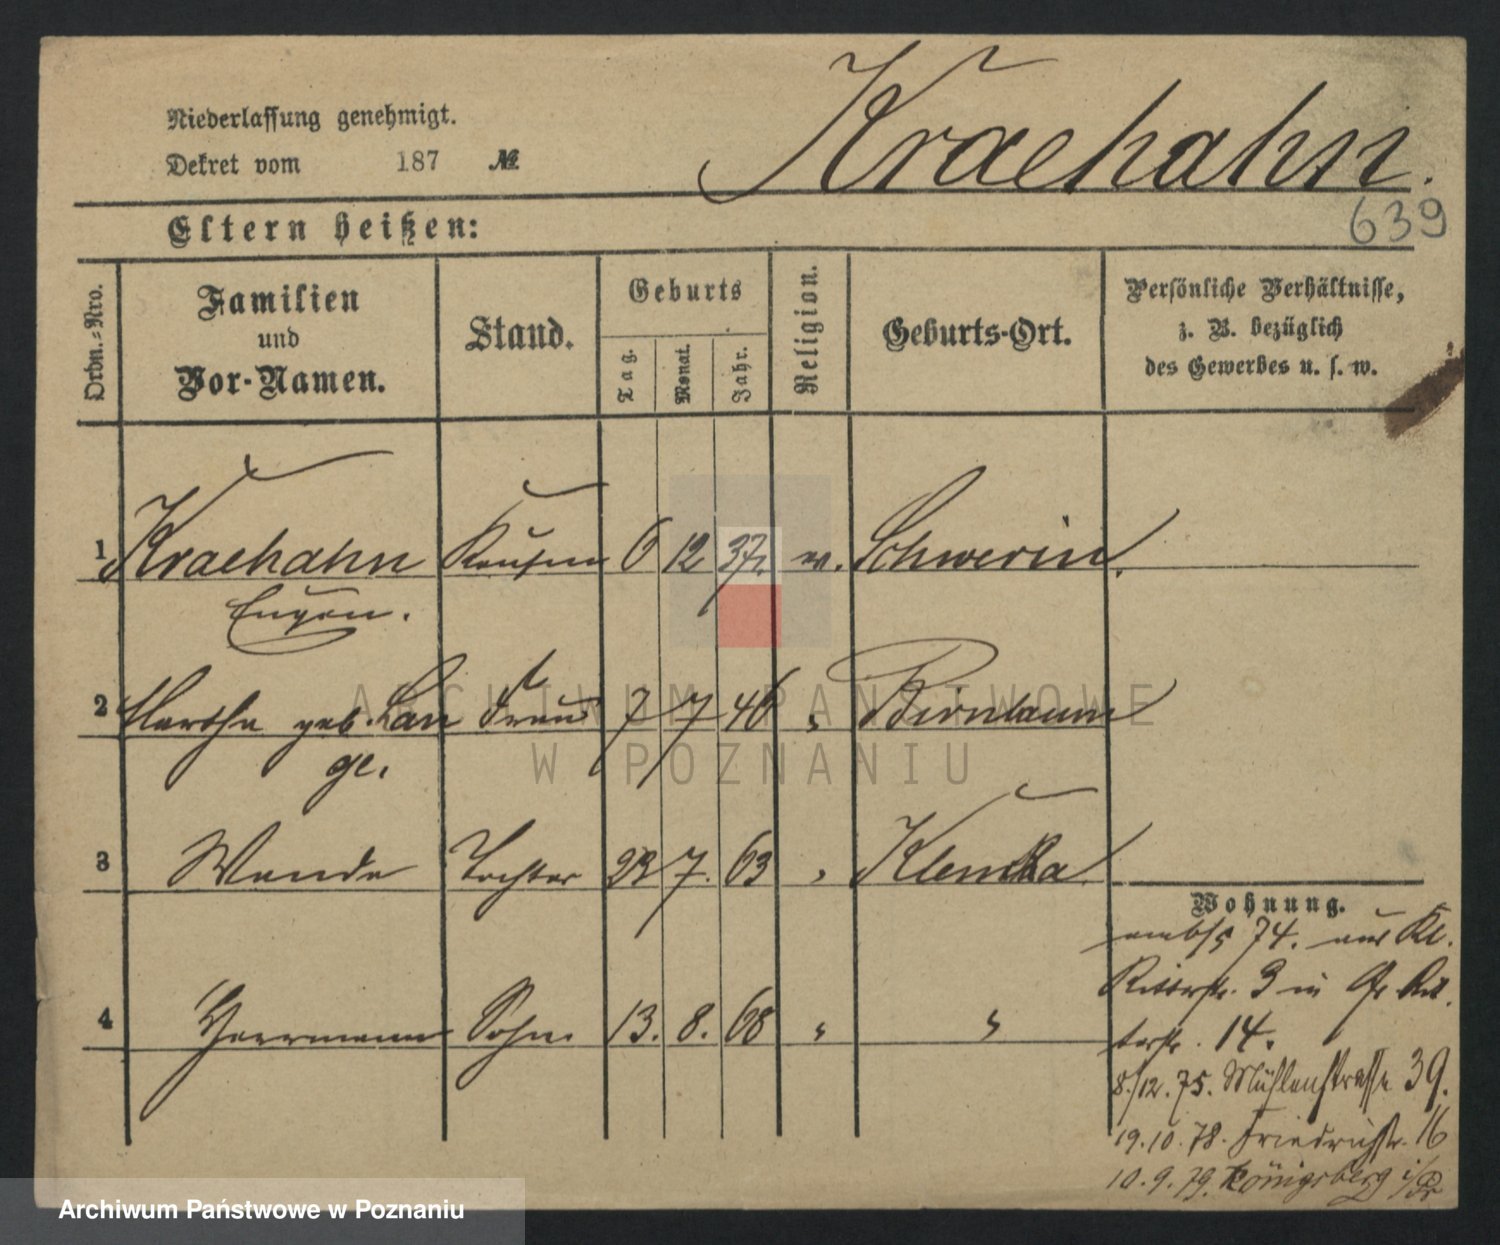 Niederlassung genehmigt.
Dekret vom 187 №
Kraehahn.
639
Eltern heißen:
Ordn.-Nro.
Familien
und
Vor-Namen.
Stand.
Geburts
Tag.
Monat.
Jahr.
Religion.
Geburts-Ort.
Persönliche Verhältnisse,
z. B. bezüglich
des Gewerbes u. s. w.
1 Kraehahn Kaufm 6 12 37. Schwerin.
Eugen.
2 Martha geb. Lan Frau 7 7 46 " Birnbaum
ge.
3 Wanda Tochter 23 7. 63 "
4 Herrmann Sohn 13. 8. 68 " "
Wohnung.
74. aus Kl.
Ritterstr. 3 in Gr Rit
terstr. 14.
8./12. 75. Mühlenstrasse 39.
19.10.78. Friedrichstr. 16
10.9.79. Königsberg i/Pr
ARCHIWUM PAŃSTWOWE
W POZNANIU
Archiwum Państwowe w Poznaniu